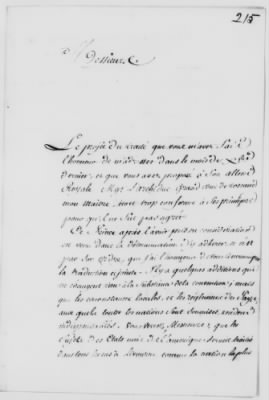 215
Messieurs
Le projet du traité que vous m'avez fait
l'honneur de m'adresser dans le mois de
dernier, et que vous avez proposé à Son Altesse
Royale Mgr. l'archiduc grand duc de toscane
mon maitre, étoit trop conforme à Ses principes
pour qu'il ne fut pas agréé.
Ce Prince après l'avoir pris en considération
en vient dans la détermination d'y adhérer, et c'est
par Son ordre, que j'ai l'honneur de vous
la traduction cy jointe. Il y a quelques additions qui
ne changent rien à la substance de la convention; mais
que les circonstances locales, et les règlements du Pays,
aux quels toutes les nations sont soumises, rendent
indispensables. Vous verrez, Messieurs, que les
sujets des Etats unis de l'amérique seront traités
dans tous les cas à Livourne comme la nation la plus